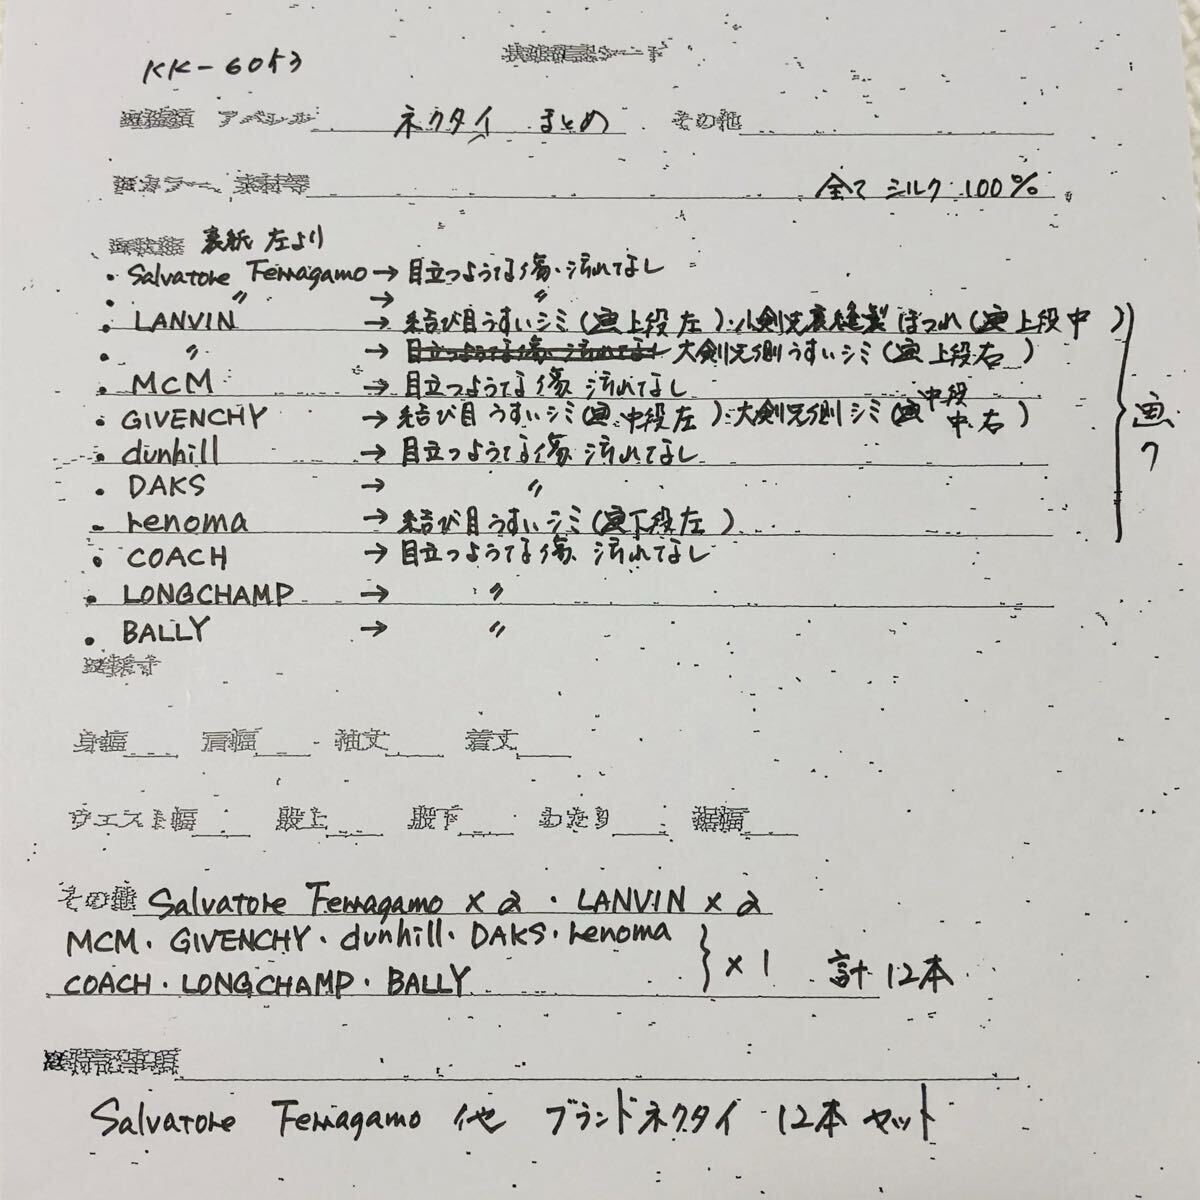 KK-6053
アパレル ネクタイ まとめ その他
カラー、素材等 全て シルク 100%
表紙 左より
・Salvatore Ferragamo → 目立つような傷、汚れてなし
・〃 → 〃
・LANVIN → 結び目うすいシミ(画上段左)・小剣先裏縫製ほつれ(画上段中)
・〃 → 大剣先側うすいシミ(画上段右)
・MCM → 目立つような傷 汚れてなし
・GIVENCHY → 結び目うすいシミ(画中段左)・大剣先側シミ(画中段中右)
・dunhill → 目立つような傷 汚れてなし
・DAKS → 〃
・renoma → 結び目うすいシミ(画下段左)
・COACH → 目立つような傷、汚れてなし
・LONGCHAMP → 〃
・BALLY → 〃
画7
身幅 肩幅 袖丈 着丈
ウエスト幅 股上 股下 わたり 裾幅
その他 Salvatore Ferragamo × 2 ・ LANVIN × 2
MCM・GIVENCHY・dunhill・DAKS・renoma
COACH・LONGCHAMP・BALLY } × 1 計 12本
特記事項
Salvatore Ferragamo 他 ブランドネクタイ 12本 セット